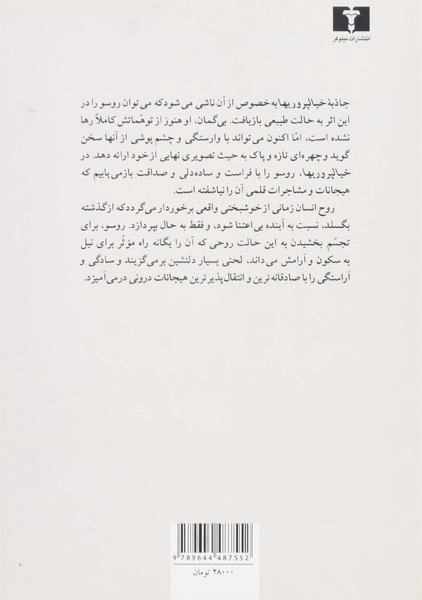 انتشارات نیلوفر
جاذبهٔ خیالپروریها به خصوص از آن ناشی می‌شود که می‌توان روسو را در
این اثر به حالت طبیعی بازیافت. بی‌گمان، او هنوز از توهّماتش کاملاً رها
نشده است، امّا اکنون می‌تواند با وارستگی و چشم پوشی از آنها سخن
گوید و چهره‌ای تازه و پاک به حیث تصویری نهایی از خود ارائه دهد. در
خیالپروریها، روسو را با فراست و ساده‌دلی و صداقت بازمی‌یابیم که
هیجانات و مشاجرات قلمی آن را نیاشفته است.
روح انسان زمانی از خوشبختی واقعی برخوردار می‌گردد که از گذشته
بگسلد، نسبت به آینده بی‌اعتنا شود، و فقط به حال بپردازد. روسو، برای
تجسّم بخشیدن به این حالت روحی که آن را یگانه راه مؤثّر برای نیل
به سکون و آرامش می‌داند، لحنی بسیار دلنشین برمی‌گزیند و سادگی و
آراستگی را با صادقانه‌ترین و انتقال‌پذیرترین هیجانات درونی درمی‌آمیزد.
9 789644 487552
۲۸۰۰۰ تومان